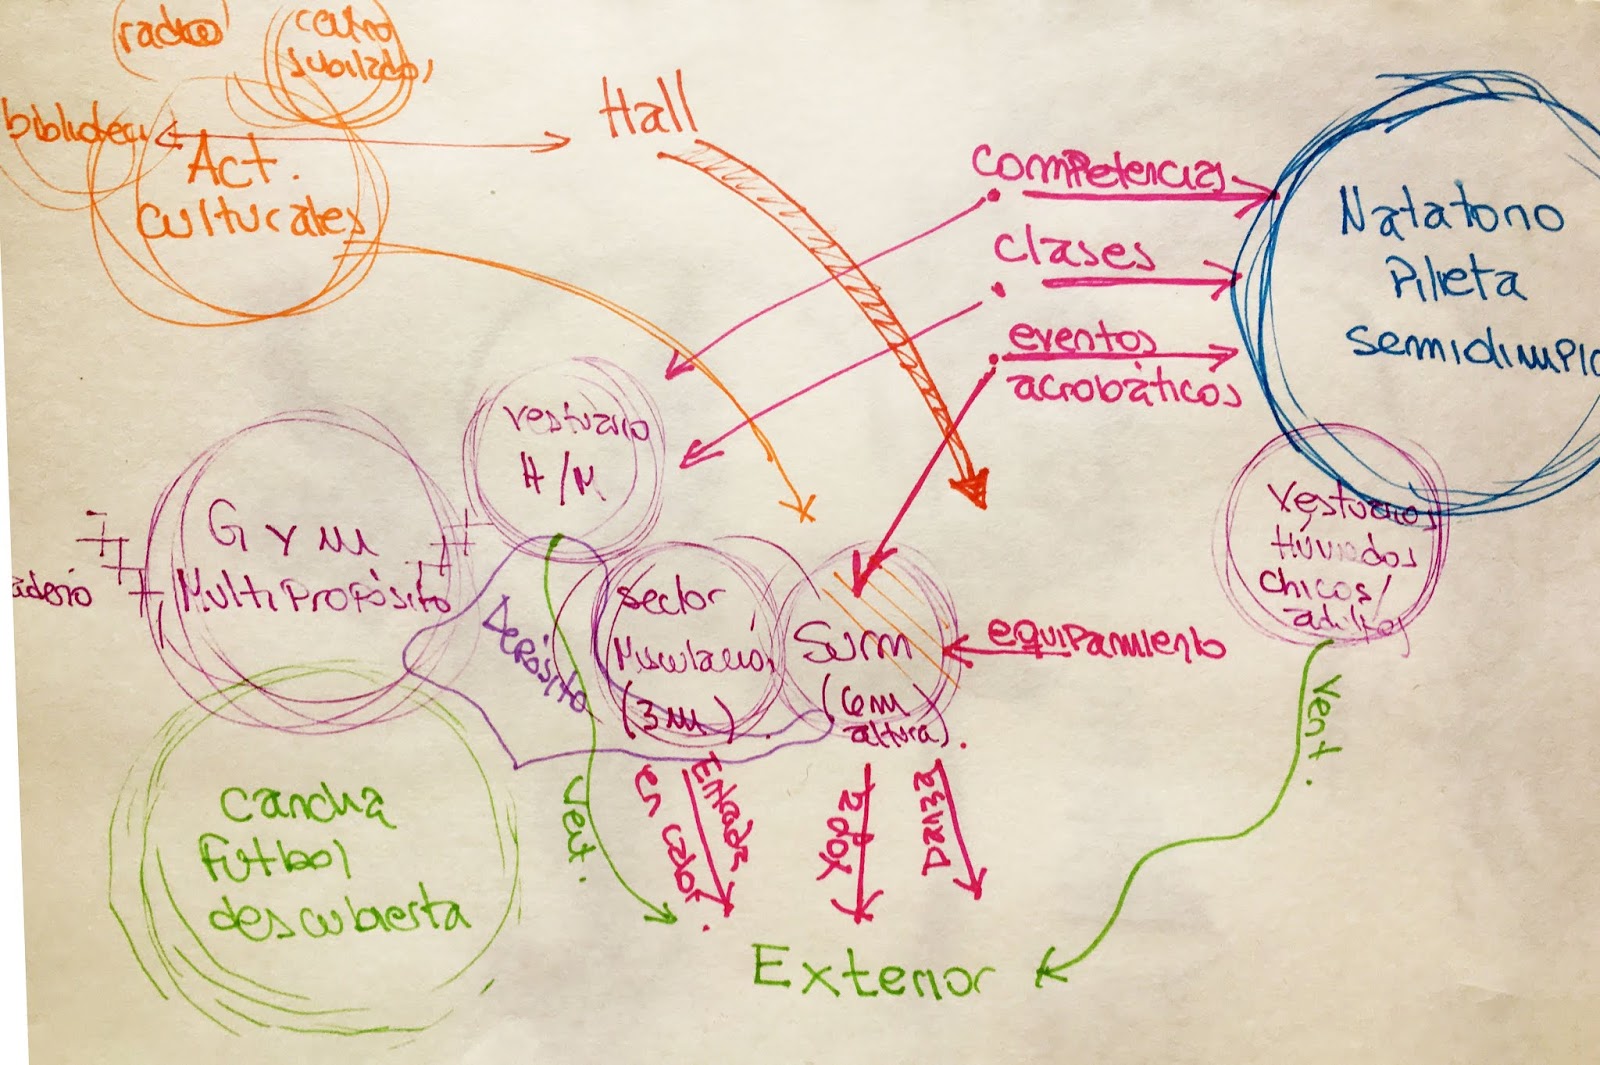 radio
centro
jubilados
biblioteca
Act.
culturales
Hall
competencias
clases
eventos
acrobáticos
Natatorio
Pileta
semiolimpic
vestuario
H/M
Gym
Multipropósito
Depósito
sector
Musculación
(3m).
Sum
(6m
altura).
equipamiento
Vestuarios
Húmedos
chicos/
adultos
cancha
futbol
descubierta
Vent.
Entrada
en calor.
Danza
Vent.
Exterior